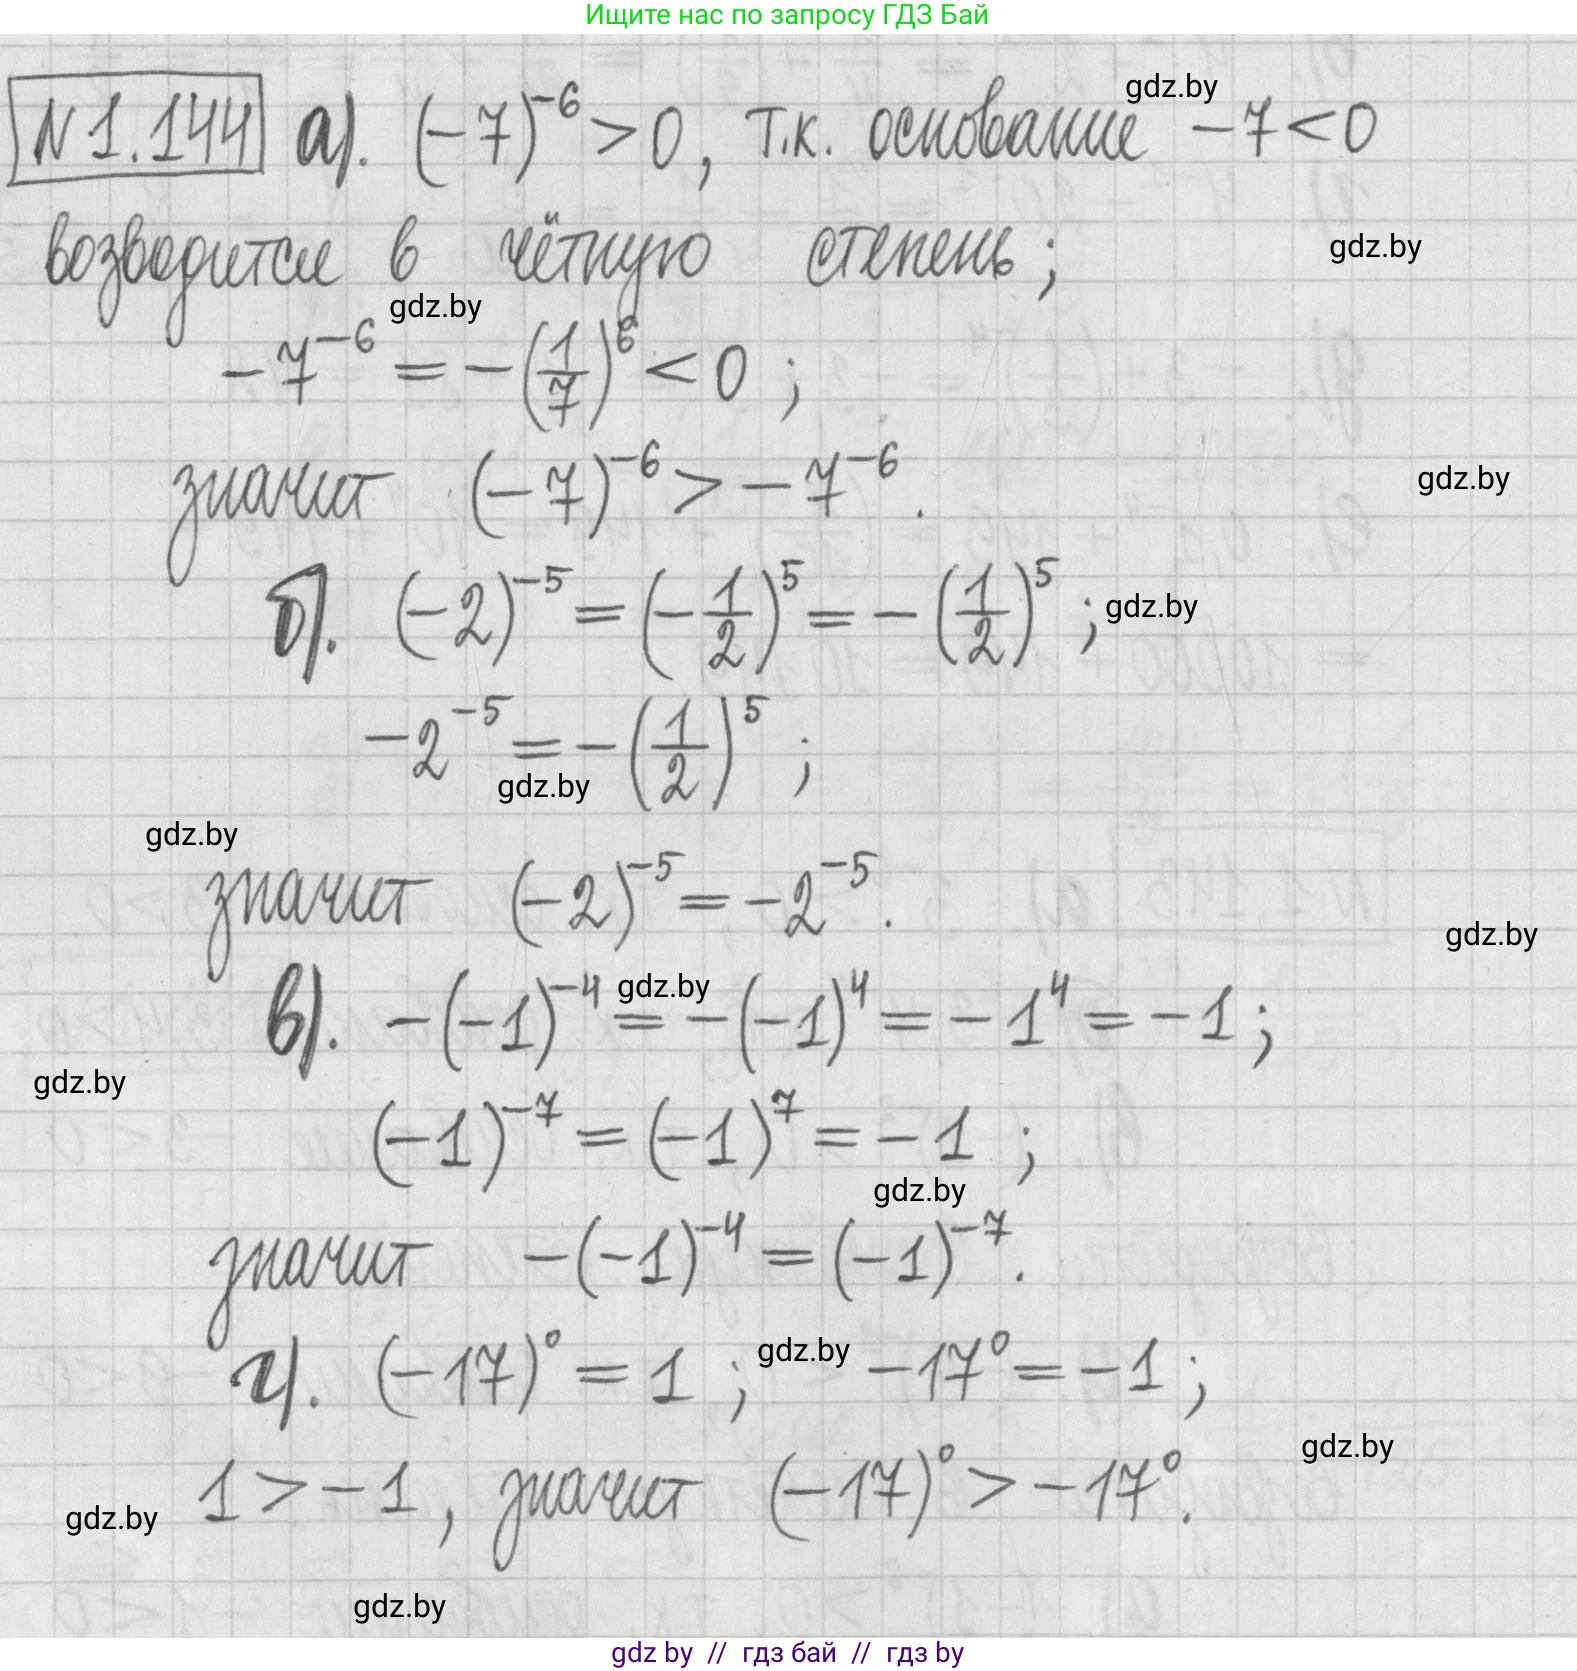 Ищите нас по запросу ГДЗ Бай
gdz.by
№1.144 а). (-7)^{-6} > 0, т.к. основание -7 < 0
возводится в чётную степень;
gdz.by
gdz.by
-7^{-6} = -(1/7)^6 < 0 ;
значит (-7)^{-6} > -7^{-6}.
gdz.by
б). (-2)^{-5} = (-1/2)^5 = -(1/2)^5 ;
gdz.by
-2^{-5} = -(1/2)^5 ;
gdz.by
gdz.by
значит (-2)^{-5} = -2^{-5}.
gdz.by
в). -(-1)^{-4} = -(-1)^4 = -1^4 = -1 ;
gdz.by
gdz.by
(-1)^{-7} = (-1)^7 = -1 ;
gdz.by
значит -(-1)^{-4} = (-1)^{-7}.
г). (-17)^0 = 1 ; -17^0 = -1 ;
gdz.by
gdz.by
1 > -1, значит (-17)^0 > -17^0.
gdz.by
gdz.by
gdz by // гдз бай // гдз by